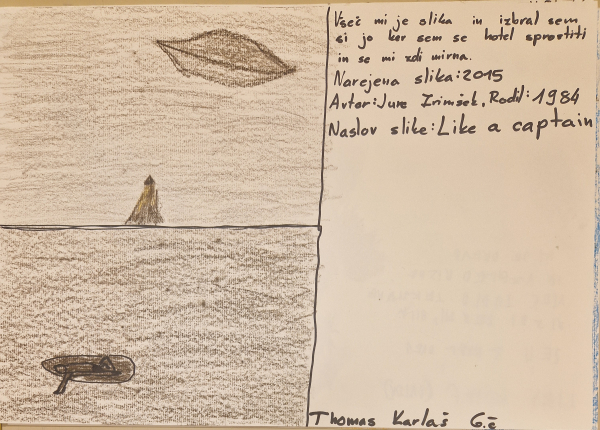 Všeč mi je slika in izbral sem
si jo ker sem se hotel sprostiti
in se mi zdi mirna.
Narejena slika:2015
Avtor:Jure Zrimšek, Rodil:1984
Naslov slike:Like a captain
Thomas Karlaš 6.č